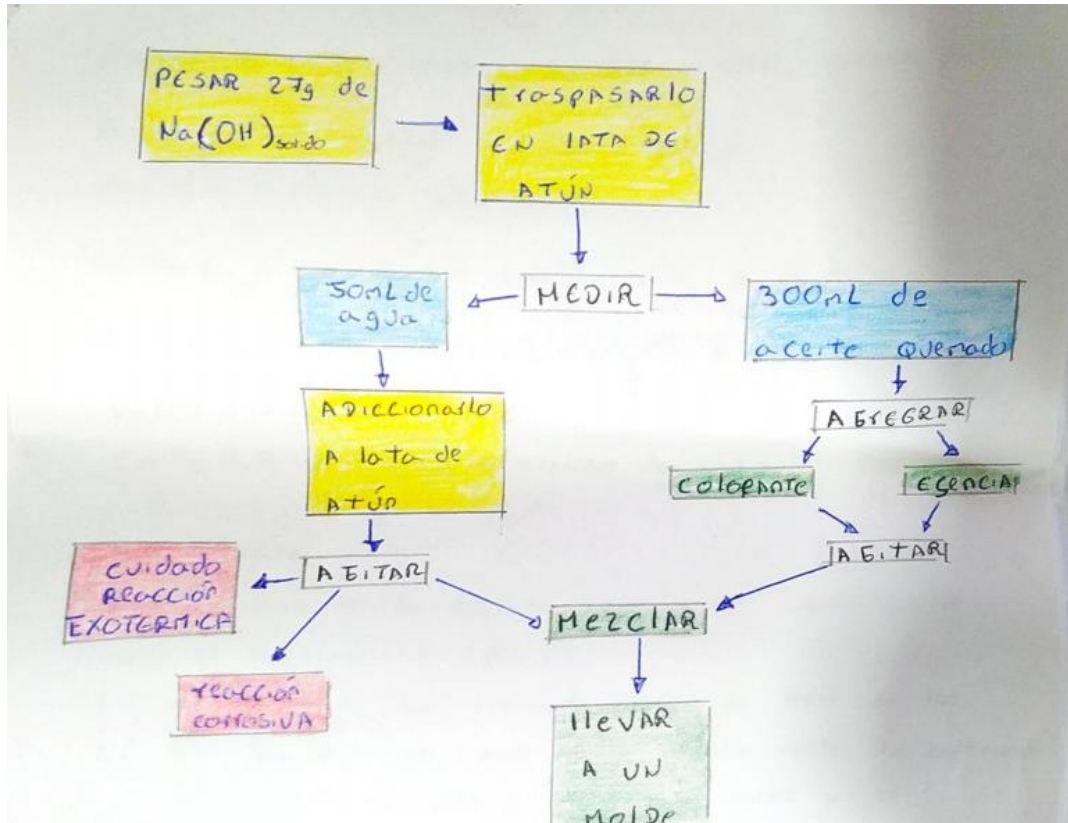 PESAR 27g de
Na(OH)solido
trasPASARlo
EN lATA DE
ATÚN
MEDIR
50mL de
agua
300mL de
aceite quemado
ADICCIONARlo
A lata de
ATÚN
AGrEGRAR
COLORANTE
ESENCIA
AGITAR
AGITAR
cuidado
REACCIÓN
EXOTERMICA
reacción
corrosiVA
MEZClAR
lleVAR
A UN
MOlDe